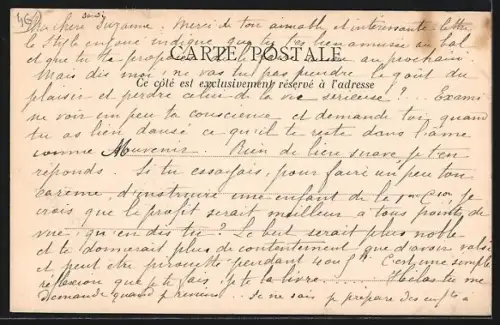 Ma chère Suzanne. Merci de ton aimable et intéressante lettre
le style enjoué indique que tu t'es bien amusée au bal
CARTE POSTALE
et que tu te proposes au prochain.
Mais dis moi, ne vas tu pas prendre le goût du
Ce côté est exclusivement réservé à l'adresse
plaisir et perdre celui de la vie sérieuse ? .. Exami
ne voir un peu ta conscience et demande toi quand
tu as bien dansé ce qu'il te reste dans l'âme
comme souvenir. Rien de bien suave je t'en
réponds. Si tu essayais, pour faire un peu ton
Carême, d'instruire une enfant de la 1ère Cion je
crois que le profit serait meilleur à tous points de
vue, qu'en dis tu ? Le but serait plus noble
et te donnerait plus de contentement que d'avoir valsé
et peut être pirouetté pendant C'est une simple
réflexion que je te fais, je te la livre .... Hélas tu me
demande quand je reviens .. Je ne sais, je prépare des